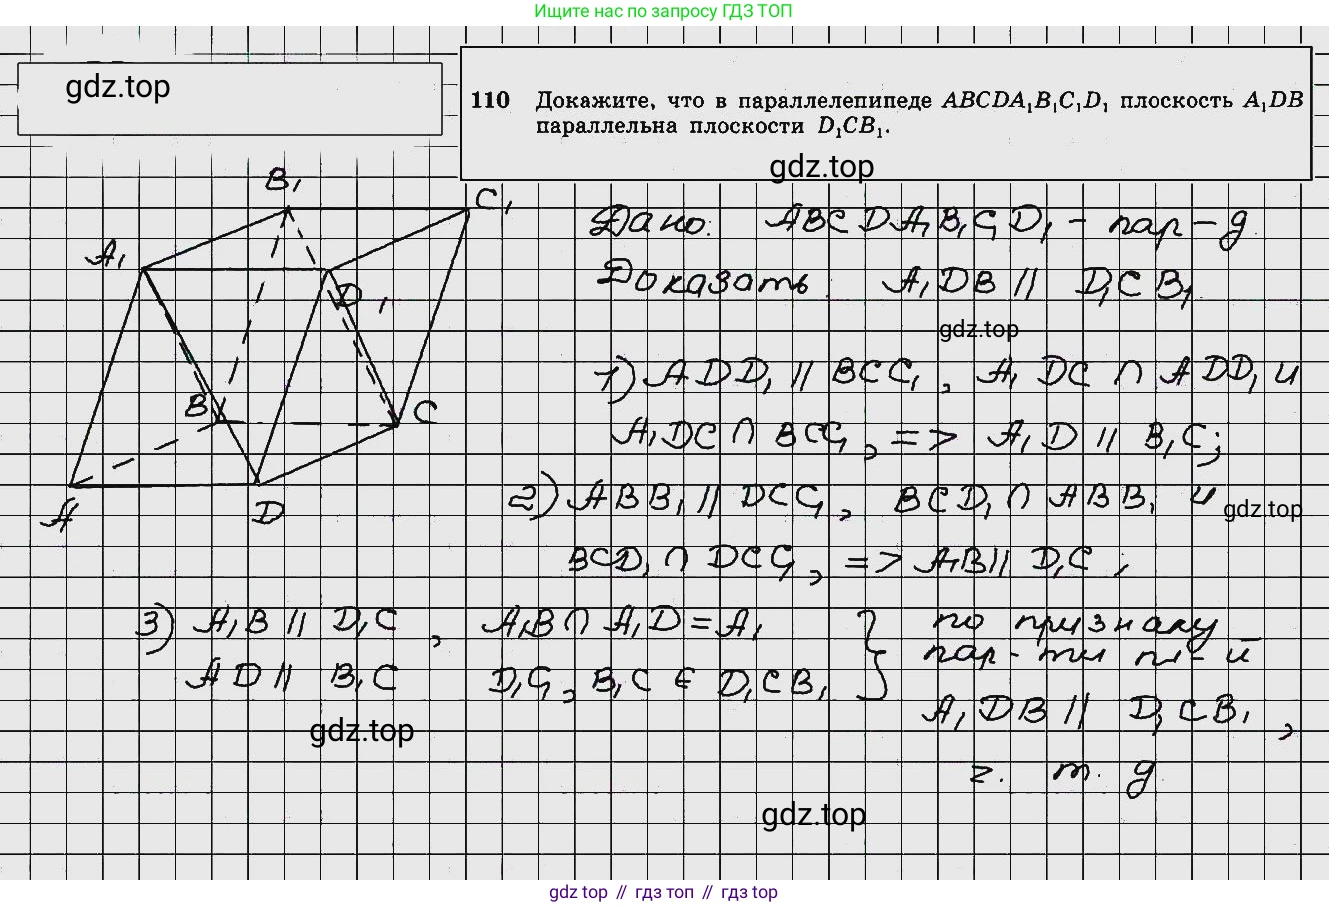 Ищите нас по запросу ГДЗ ТОП
gdz.top
110 Докажите, что в параллелепипеде ABCDA₁B₁C₁D₁ плоскость A₁DB
параллельна плоскости D₁CB₁.
gdz.top
B₁
C₁
A₁
D₁
B
C
A
D
Дано: ABCDA₁B₁C₁D₁ - пар-д
Доказать A₁DB || D₁CB₁
gdz.top
1) ADD₁ || BCC₁, A₁DC ∩ ADD₁ и
A₁DC ∩ BCC₁, => A₁D || B₁C;
2) ABB₁ || DCC₁, BCD₁ ∩ ABB₁ и
gdz.top
BCD₁ ∩ DCC₁, => A₁B || D₁C;
3) A₁B || D₁C, A₁B ∩ A₁D = A₁ } по признаку
AD || B₁C D₁C₁, B₁C ∈ D₁CB₁ пар-ти пл-й
gdz.top
A₁DB || D₁CB₁,
ч. т. д
gdz.top
gdz top // гдз топ // gdz top